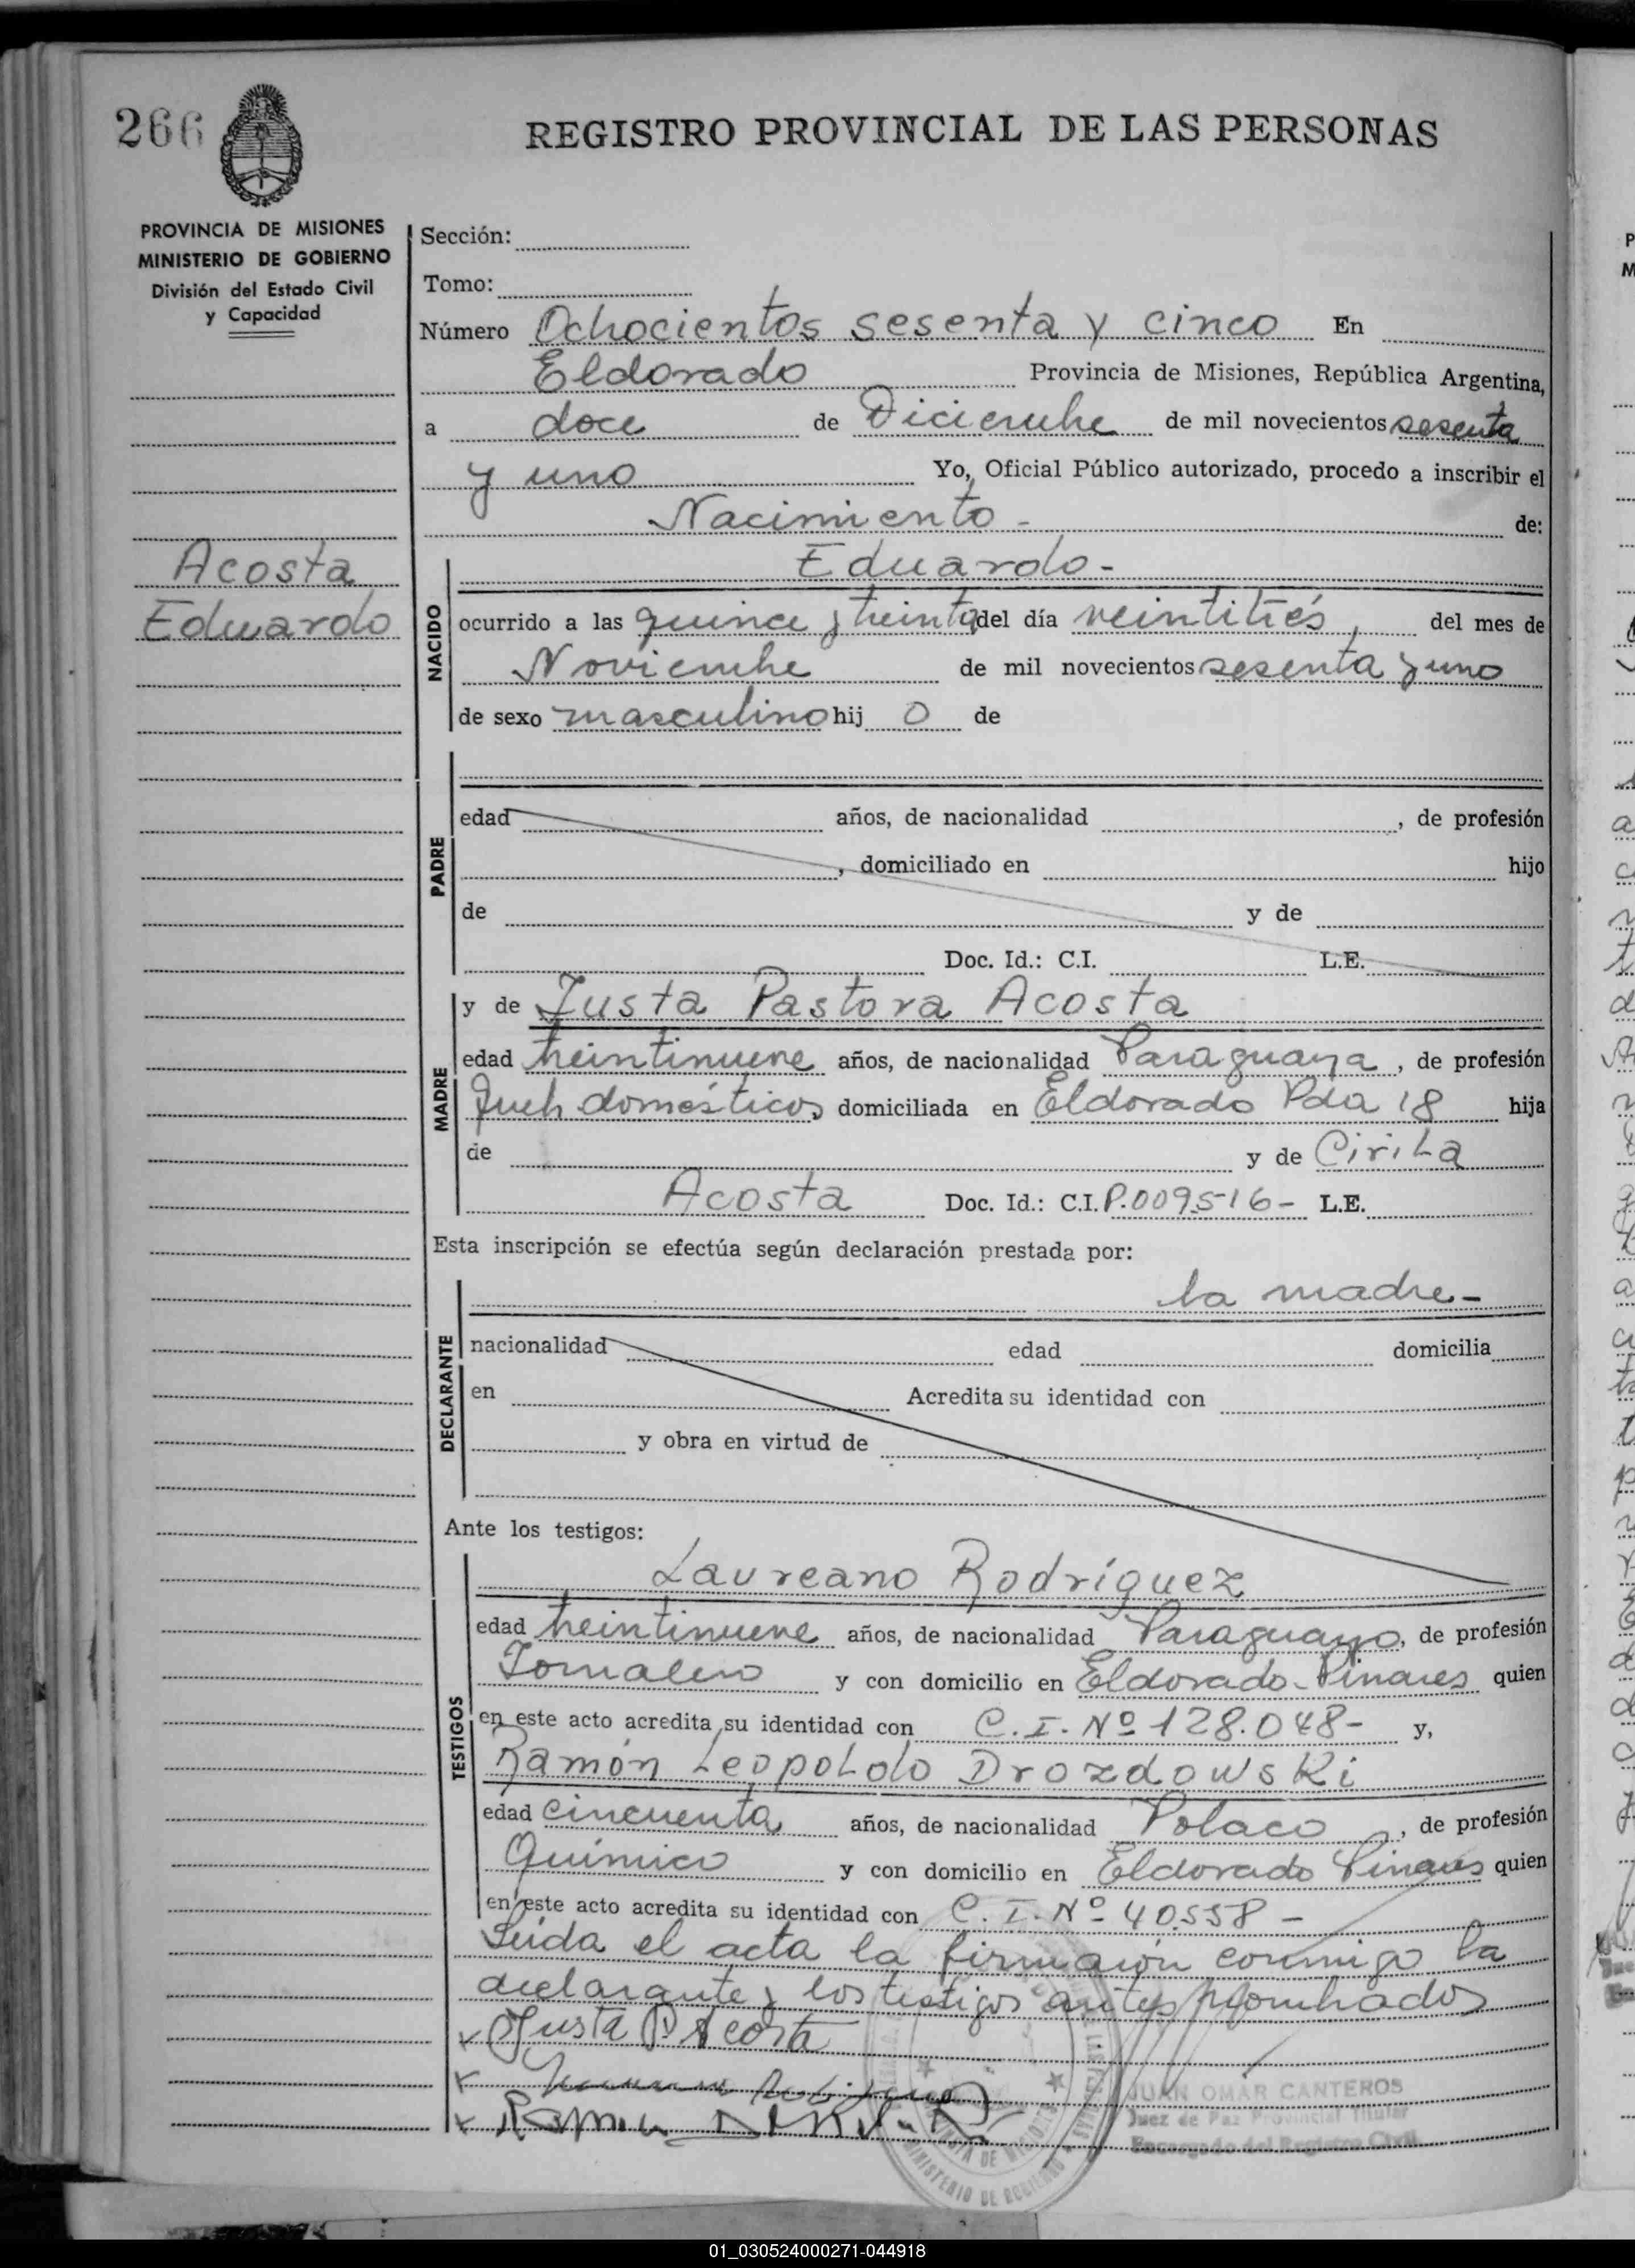 266
REGISTRO PROVINCIAL DE LAS PERSONAS
PROVINCIA DE MISIONES
MINISTERIO DE GOBIERNO
División del Estado Civil
y Capacidad
Acosta
Eduardo
Sección:
Tomo:
Número Ochocientos sesenta y cinco En
Eldorado Provincia de Misiones, República Argentina,
a doce de Diciembre de mil novecientos sesenta
y uno Yo, Oficial Público autorizado, procedo a inscribir el
Nacimiento - de:
NACIDO
Eduardo -
ocurrido a las quince y treinta del día veintitrés, del mes de
Noviembre de mil novecientos sesenta y uno
de sexo masculino hij o de
PADRE
edad años, de nacionalidad , de profesión
, domiciliado en hijo
de y de
Doc. Id.: C.I. L.E.
MADRE
y de Justa Pastora Acosta
edad treintinueve años, de nacionalidad Paraguaya, de profesión
Queh domésticos, domiciliada en Eldorado Pda 18 hija
de y de Cirila
Acosta Doc. Id.: C.I. P.009516- L.E.
Esta inscripción se efectúa según declaración prestada por:
DECLARANTE
la madre -
nacionalidad edad domicilia
en Acredita su identidad con
y obra en virtud de
Ante los testigos:
TESTIGOS
Laureano Rodríguez
edad treintinueve años, de nacionalidad Paraguayo, de profesión
Jornalero y con domicilio en Eldorado - Pinares quien
en este acto acredita su identidad con C.I. Nº 128.048- y,
Ramón Leopoldo Drozdowski
edad cincuenta años, de nacionalidad Polaco, de profesión
Químico y con domicilio en Eldorado Pinares quien
en este acto acredita su identidad con C.I. Nº 40.558 -
Leída el acta la firmaron conmigo la
declarante y los testigos antes nombrados
Justa P. Acosta
JUAN OMAR CANTEROS
Juez de Paz Provincial Titular
Encargado del Registro Civil
MINISTERIO DE GOBIERNO
01_030524000271-044918